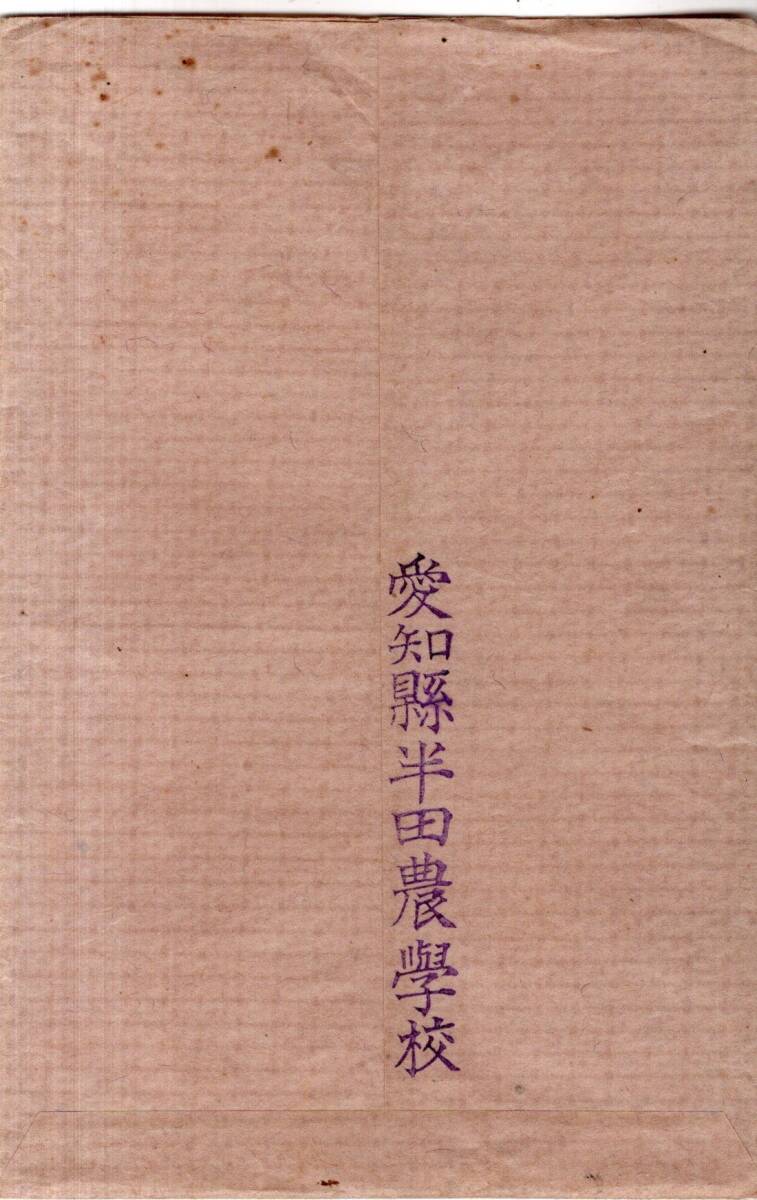 愛知縣半田農學校